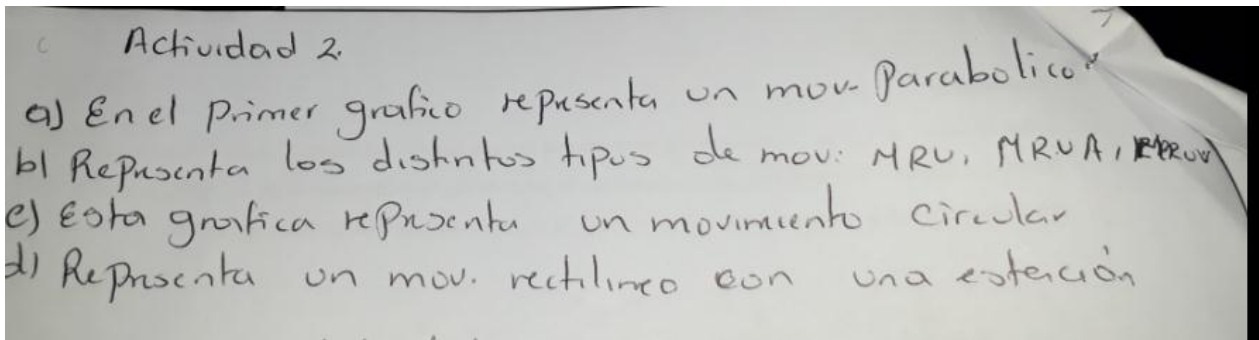 Actividad 2.
a) En el Primer grafico representa un mov. Parabolico
b) Representa los distintos tipos de mov: MRU, MRUA,
c) Esta grafica representa un movimiento circular
d) Representa un mov. rectilineo con una estención